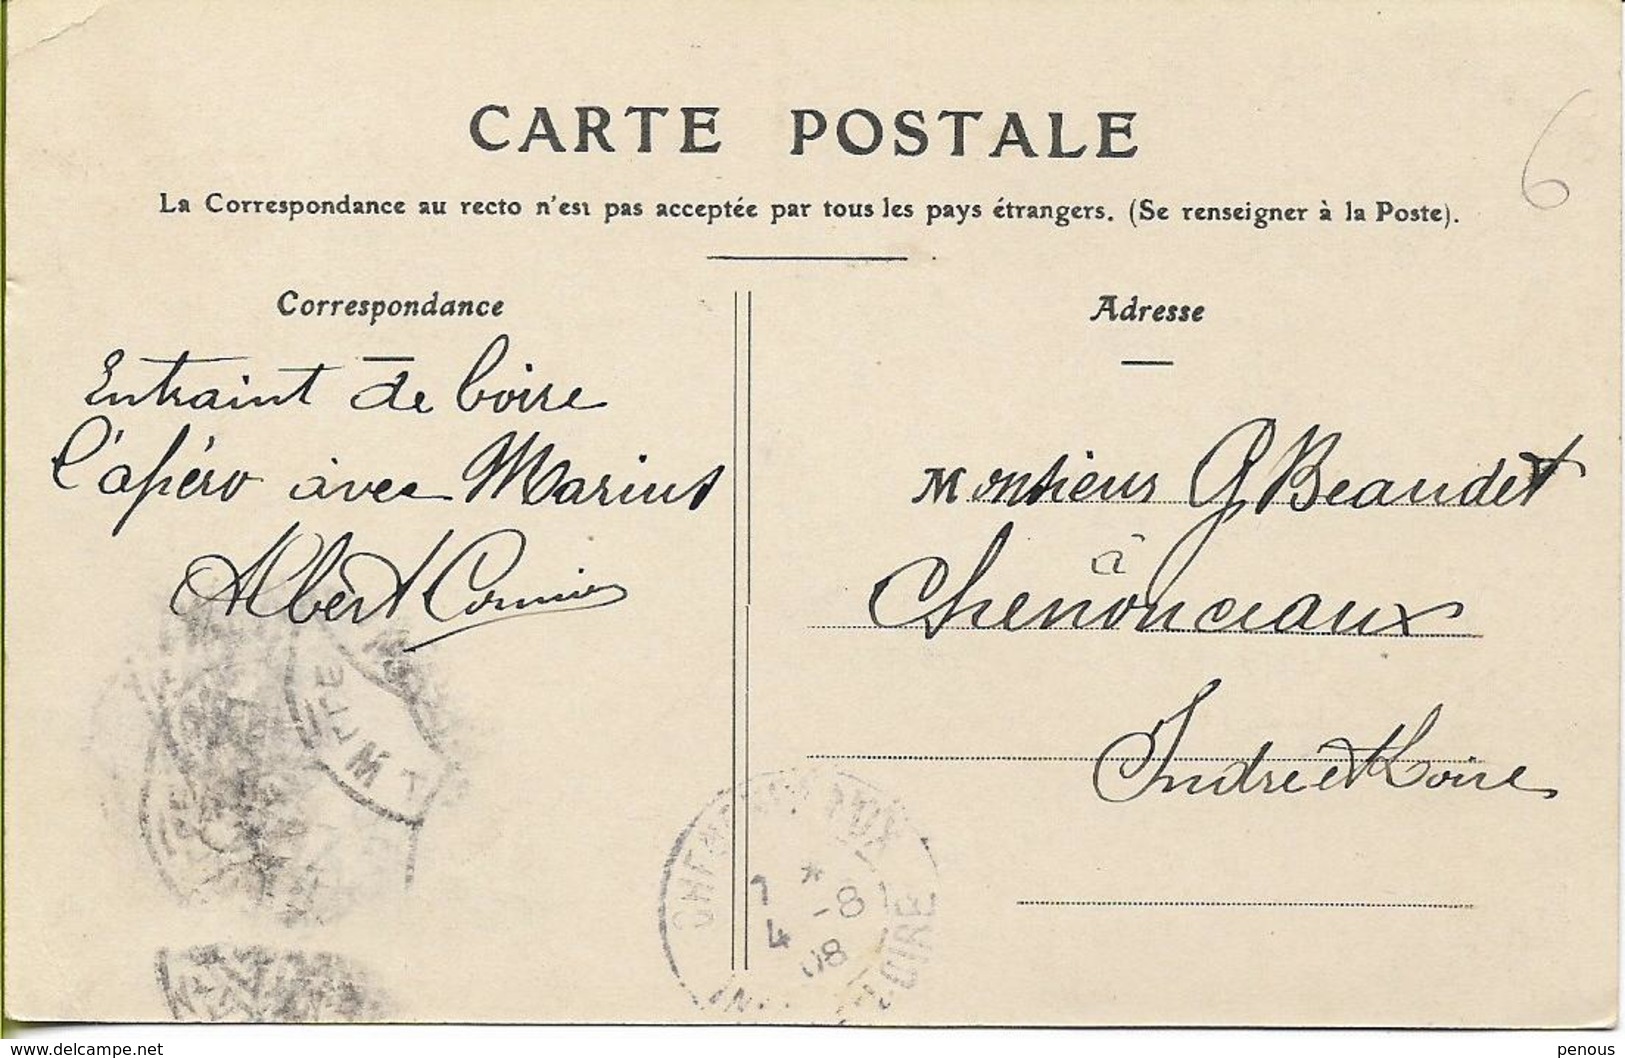 CARTE POSTALE
6
La Correspondance au recto n'est pas acceptée par tous les pays étrangers. (Se renseigner à la Poste).
Correspondance
Entraint de boire
l'apéro avec Marius
Albert
Adresse
Monsieur G Beaudet
à
Chenonceaux
Indre et Loire
CHENONCEAUX
7 * 4 -8 08
LOIRE
www.delcampe.net
penous